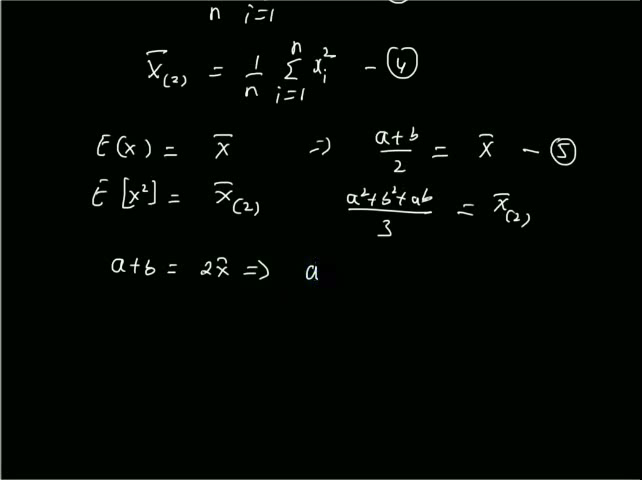 n i=1
x̄(2) = 1/n n∑i=1 xi² - ④
E(x) = x̄ => a+b/2 = x̄ - ⑤
E[x²] = x̄(2) a²+b²+ab/3 = x̄(2)
a+b = 2x̄ => a